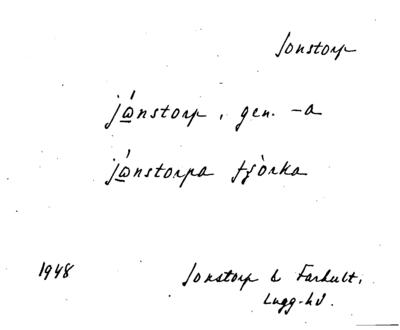 Jonstorp
jɷ́nstorp, gen. -a
jɷ́nstorpa tʃòrka
1948 Jonstorp o Farhult,
Lugg. hd.